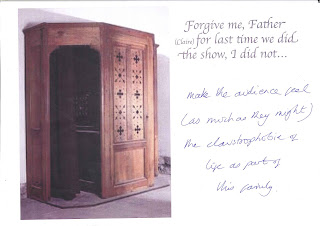 Forgive me, Father
(Claire) for last time we did
the show, I did not...
make the audience feel
(as much as they might)
the claustrophobia of
life as part of
this family.